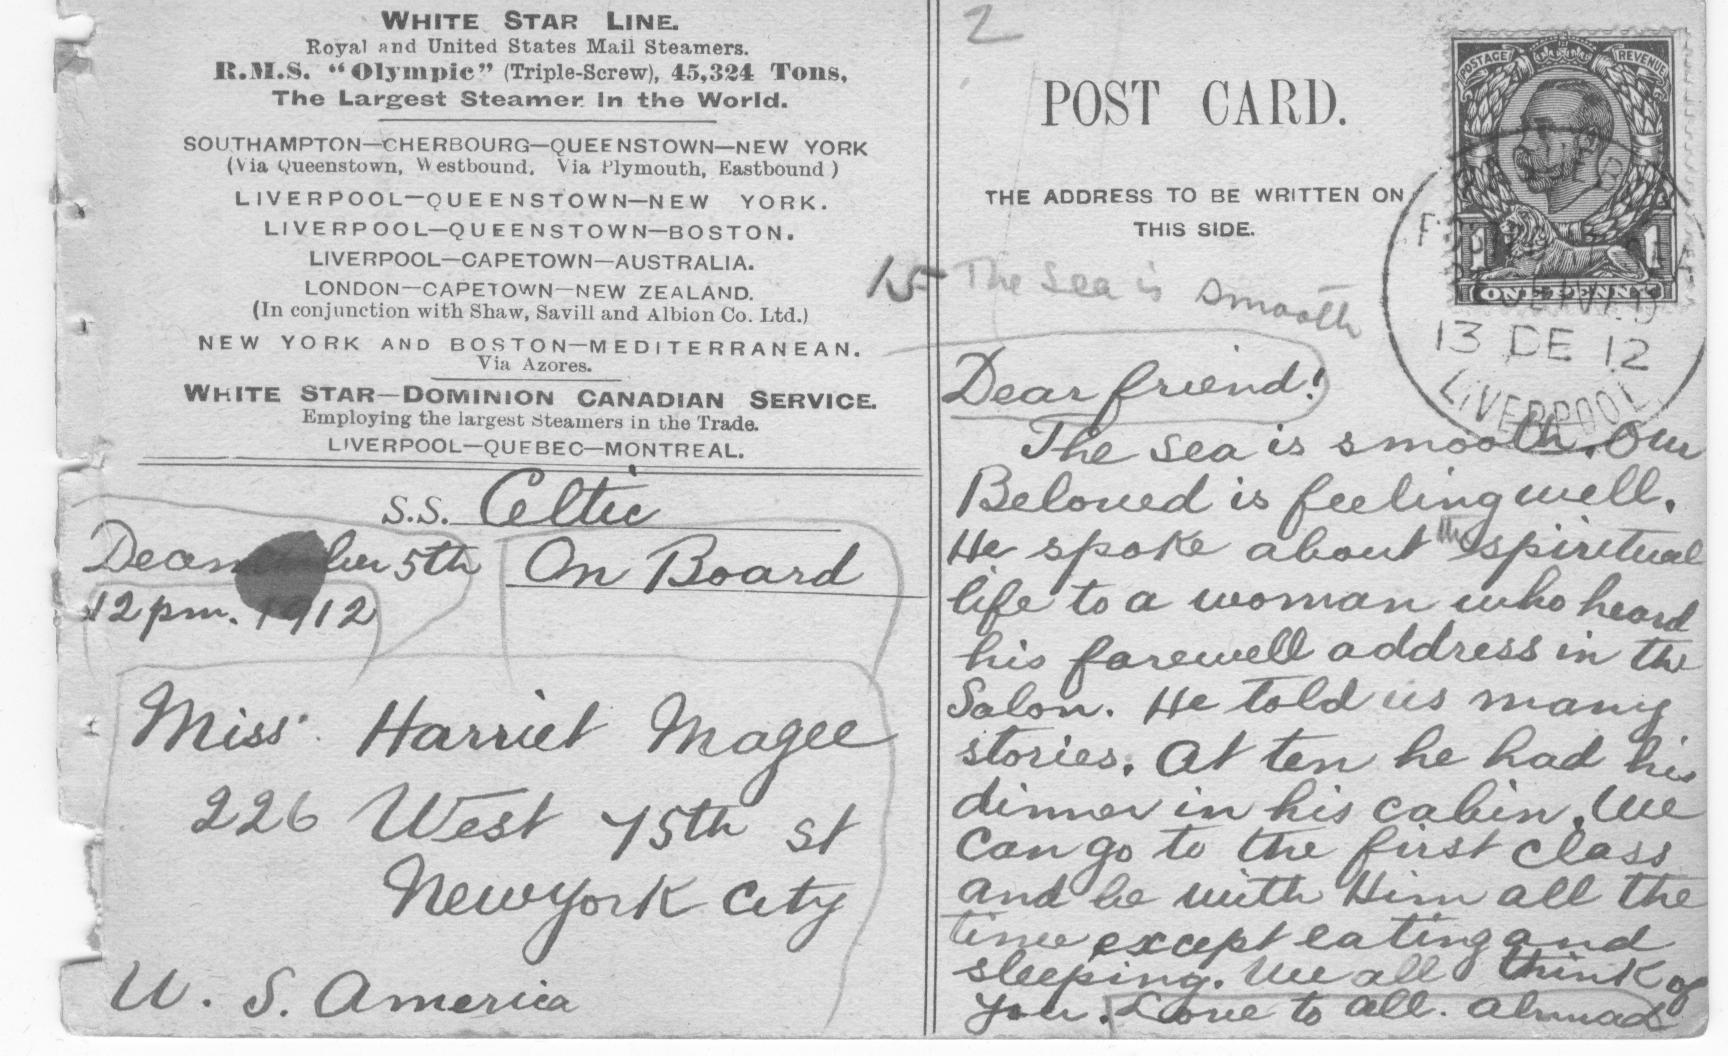 WHITE STAR LINE.
Royal and United States Mail Steamers.
R.M.S. "Olympic" (Triple-Screw), 45,324 Tons,
The Largest Steamer in the World.
SOUTHAMPTON—CHERBOURG—QUEENSTOWN—NEW YORK
(Via Queenstown, Westbound. Via Plymouth, Eastbound)
LIVERPOOL—QUEENSTOWN—NEW YORK.
LIVERPOOL—QUEENSTOWN—BOSTON.
LIVERPOOL—CAPETOWN—AUSTRALIA.
LONDON—CAPETOWN—NEW ZEALAND.
(In conjunction with Shaw, Savill and Albion Co. Ltd.)
NEW YORK AND BOSTON—MEDITERRANEAN.
Via Azores.
WHITE STAR—DOMINION CANADIAN SERVICE.
Employing the largest Steamers in the Trade.
LIVERPOOL—QUEBEC—MONTREAL.
S.S. Celtic
December 5th On Board
12 pm. 1912
Miss Harriet Magee
226 West 75th st
New York City
U. S. America
2
POST CARD.
THE ADDRESS TO BE WRITTEN ON
THIS SIDE.
POSTAGE REVENUE
1 1
ONE PENNY
13 DE 12
LIVERPOOL
15 The Sea is smooth
Dear friend!
The sea is smooth. Our
Beloved is feeling well.
He spoke about the spiritual
life to a woman who heard
his farewell address in the
Salon. He told us many
stories. At ten he had his
dinner in his cabin. We
can go to the first class
and be with Him all the
time except eating and
sleeping. We all think of
you. Love to all. Ahmad